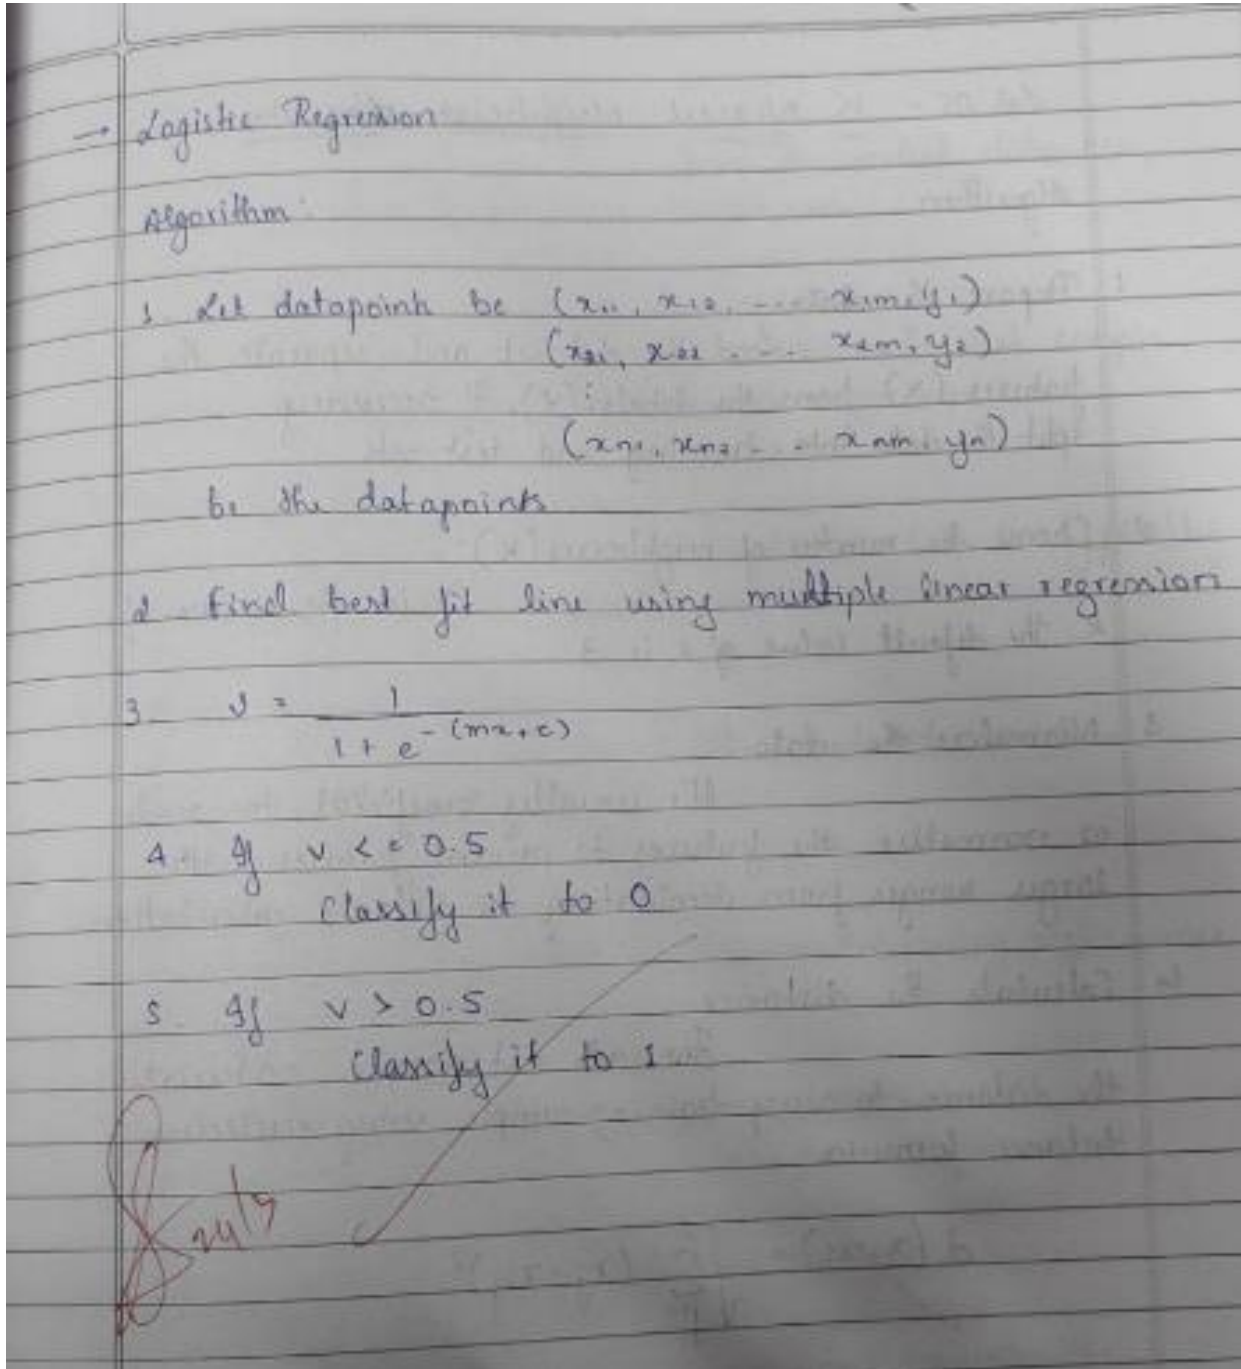 → Logistic Regression
Algorithm:
1 Let datapoints be (x₁₁, x₁₂, --- x₁m, y₁)
(x₂₁, x₂₂ - - - x₂m, y₂)
(xn₁, xn₂ - - - xnm, yn)
be the datapoints
2 Find best fit line using multiple linear regression
3 v = 1 / (1 + e^-(mx+c))
4 If v <= 0.5
Classify it to 0
5. If v > 0.5
Classify it to 1.
24/9